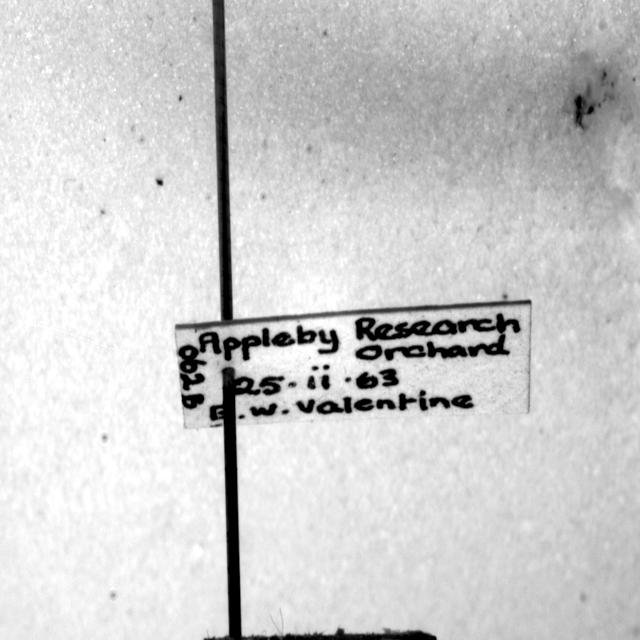 Appleby Research
Orchard
25.ii.63
E.W. Valentine